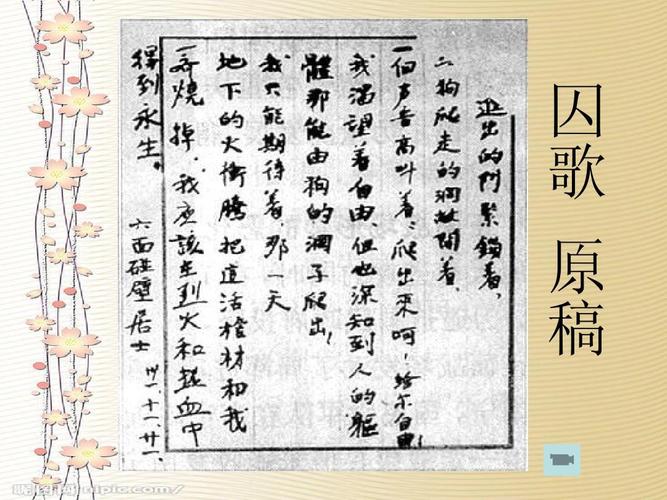 囚歌 原稿
逃出的門紧鎖着,
二狗爬走的洞敞開着,
一個声音高叫着:爬出來呵!給尔自由!
我渴望着自由,但也深知到人的軀
體那能由狗的洞子爬出!
我只能期待着,那一天
地下的火衝騰把這活棺材和我
一齊燒掉,我应該在烈火和热血中
得到永生。
六面碰壁居士 卅一·十一·廿一.
昵图网 nipic.com/